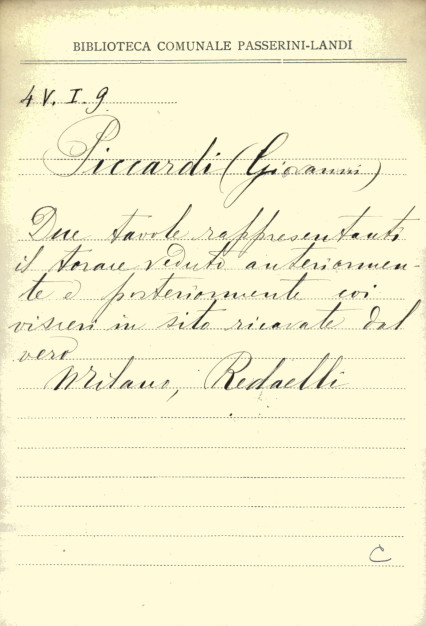 BIBLIOTECA COMUNALE PASSERINI-LANDI
4 V. I. 9
Piccardi (Giovanni)
Due tavole rappresentanti
il torace veduto anteriormen-
te e posteriormente coi
visceri in sito ricavate dal
vero
Milano, Redaelli
C